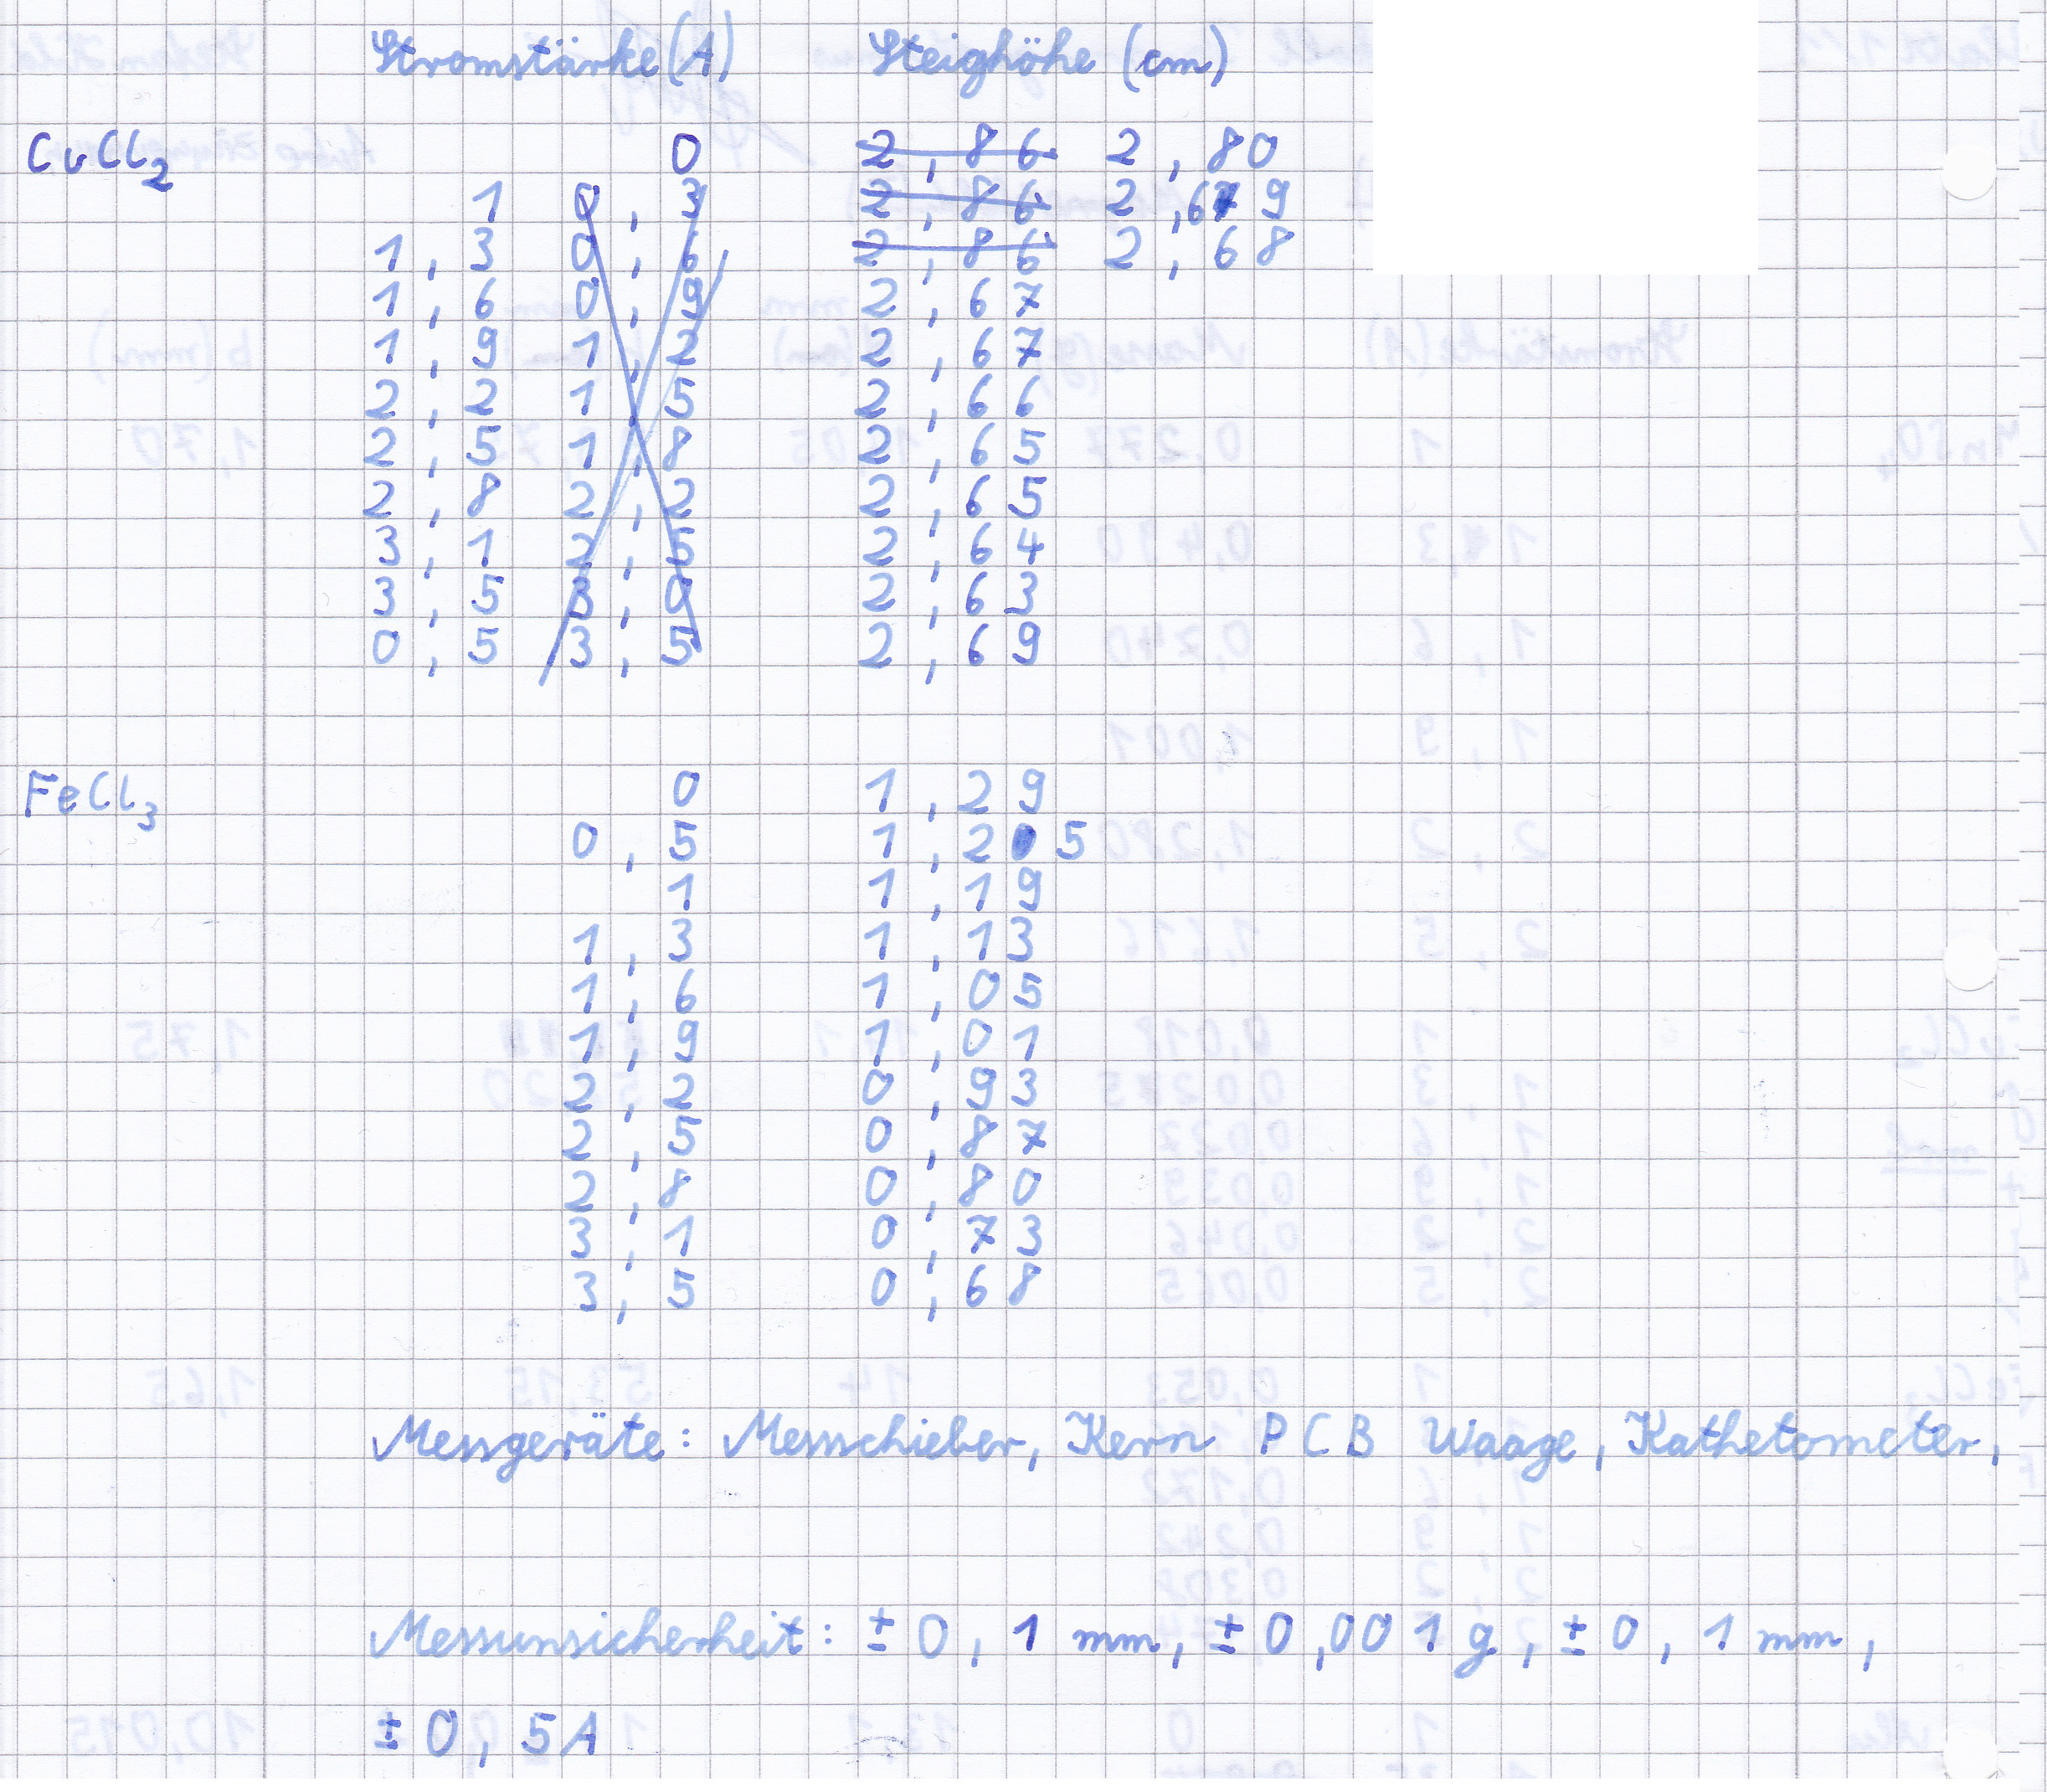 Stromstärke (A) Steighöhe (cm)
CuCl2 0 2,86 2,80
1 0,3 2,86 2,69
1,3 0,6 2,86 2,68
1,6 0,9 2,67
1,9 1,2 2,67
2,2 1,5 2,66
2,5 1,8 2,65
2,8 2,2 2,65
3,1 2,5 2,64
3,5 3,0 2,63
0,5 3,5 2,69
FeCl3 0 1,29
0,5 1,25
1 1,19
1,3 1,13
1,6 1,05
1,9 1,01
2,2 0,93
2,5 0,87
2,8 0,80
3,1 0,73
3,5 0,68
Messgeräte: Messschieber, Kern PCB Waage, Kathetometer,
Messunsicherheit: ±0,1 mm, ±0,001g, ±0,1 mm,
±0,5A